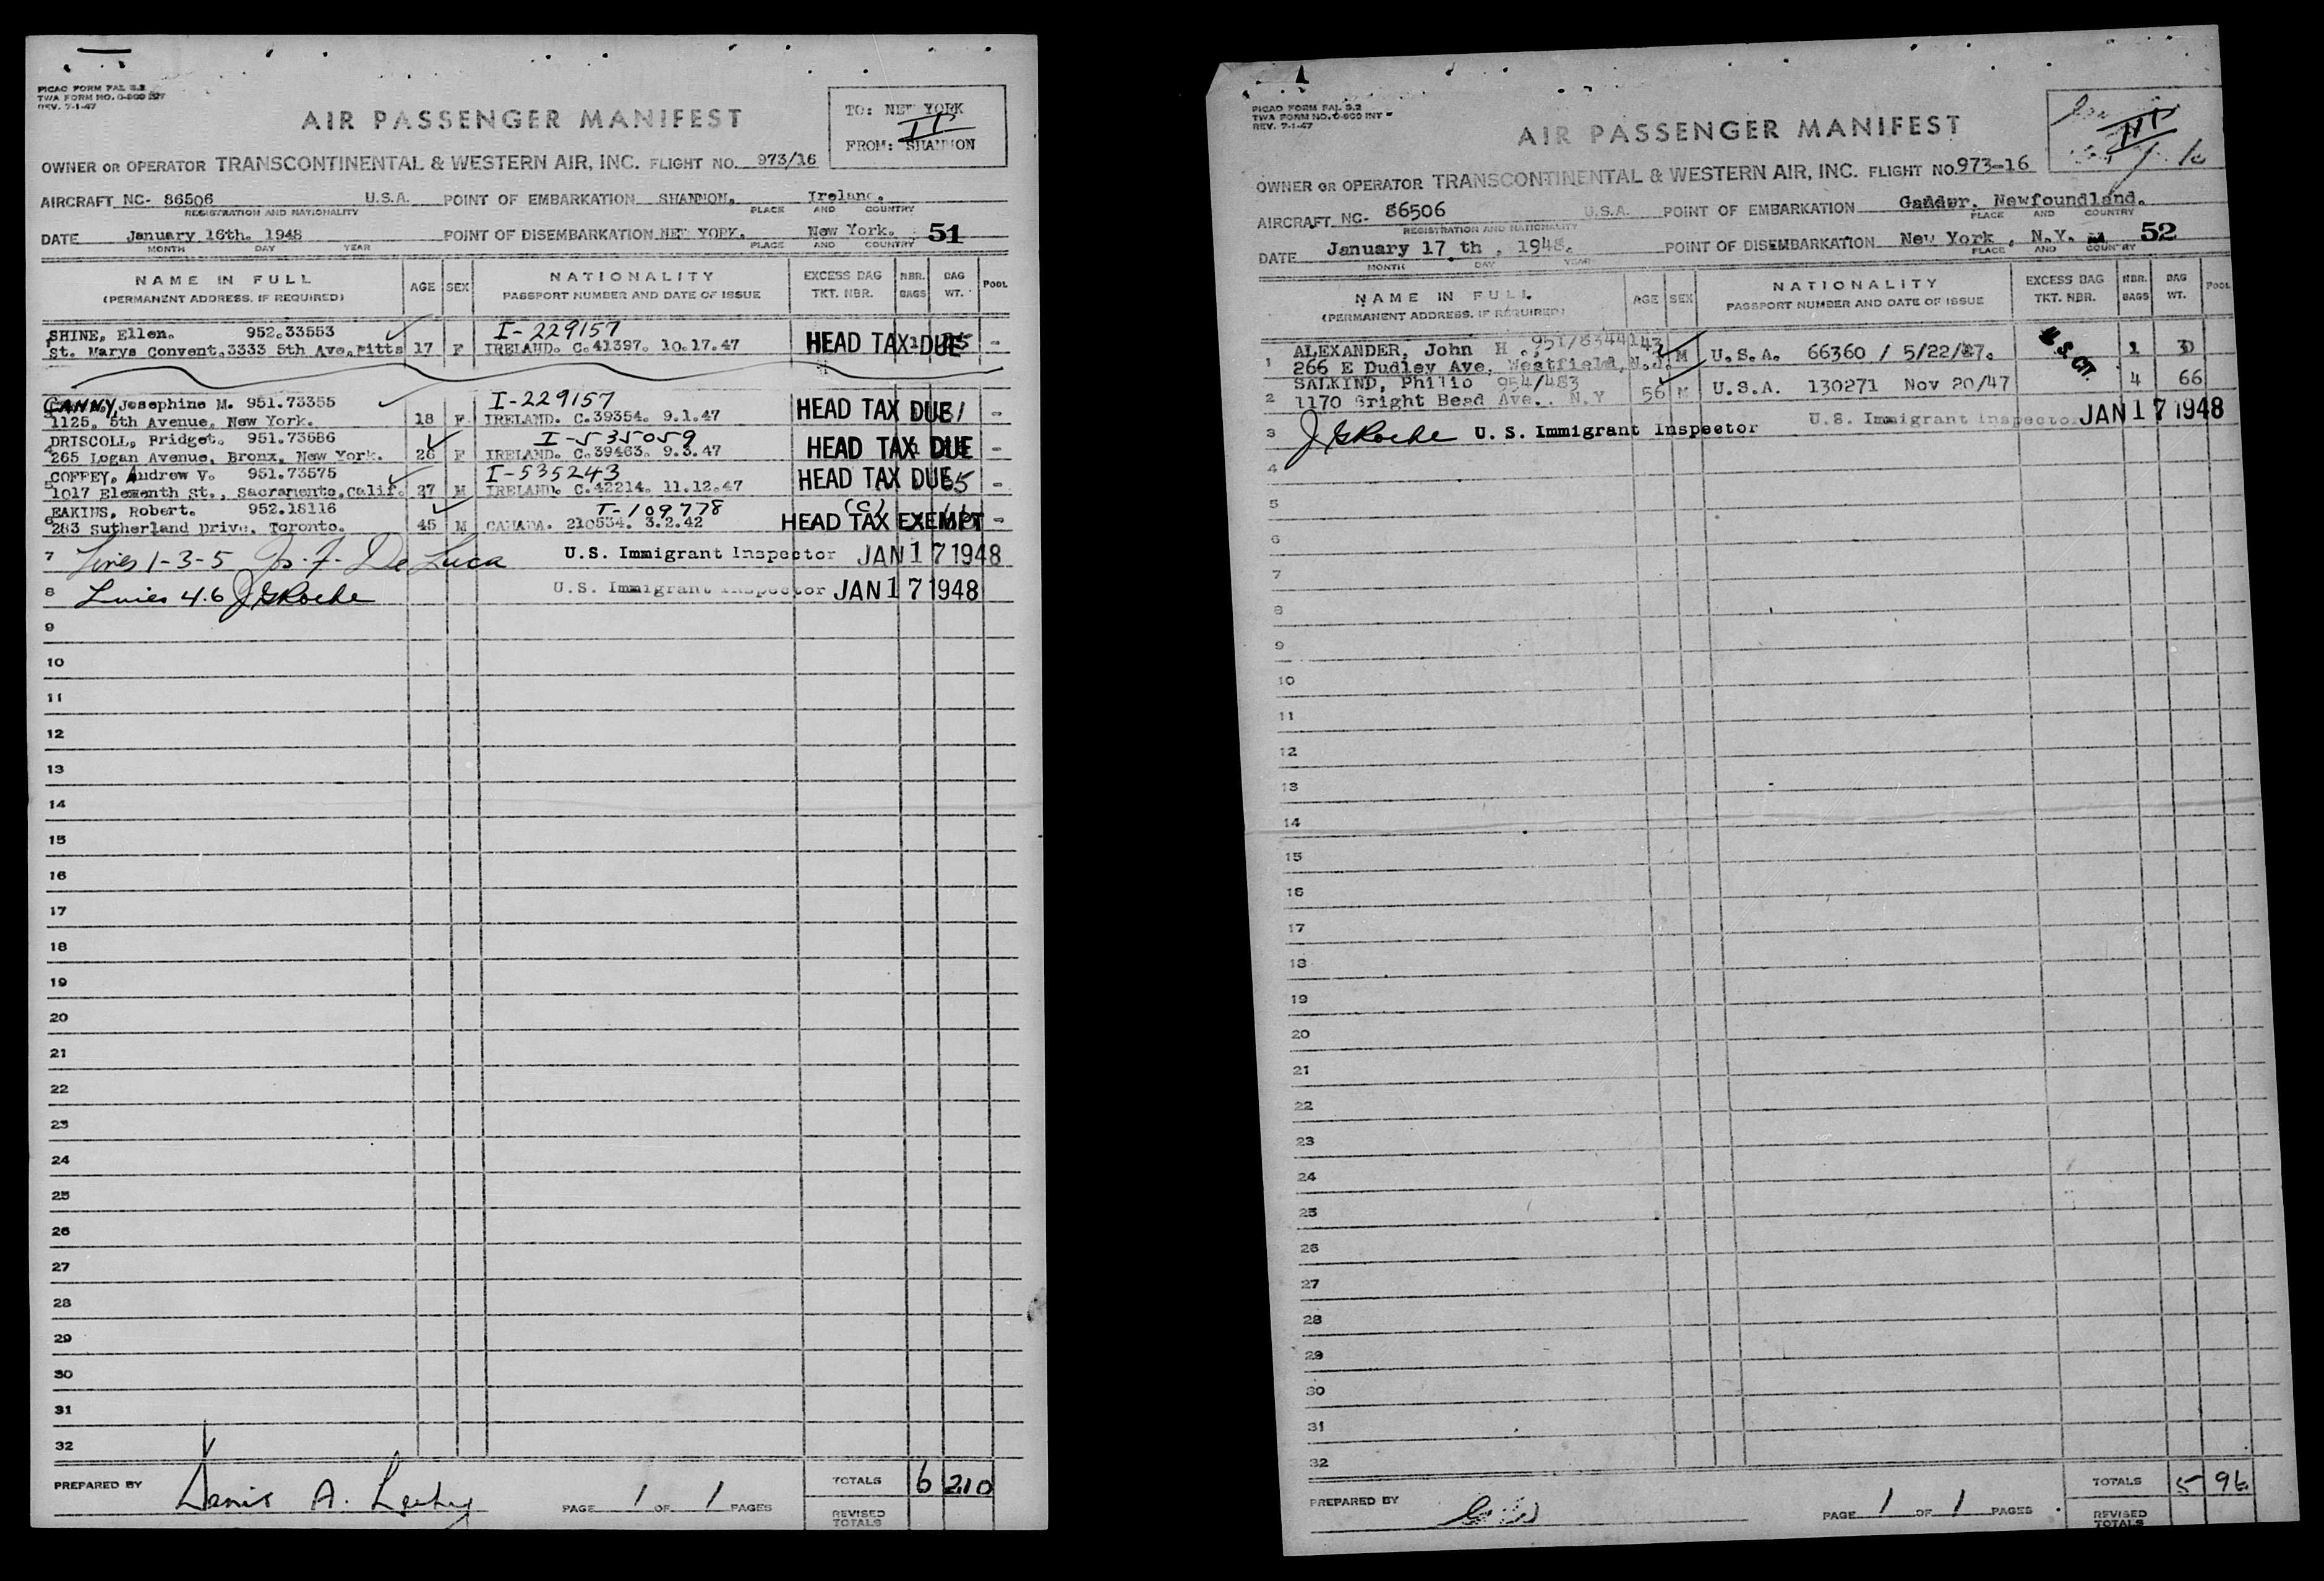 PICAO FORM FAL S.2
TWA FORM NO. 0-800 INT
REV. 7-1-47
AIR PASSENGER MANIFEST
TO: NEW YORK
II
FROM: SHANNON
OWNER OR OPERATOR TRANSCONTINENTAL & WESTERN AIR, INC. FLIGHT NO. 973/16
AIRCRAFT NC- 86506 U.S.A. POINT OF EMBARKATION SHANNON. Ireland.
REGISTRATION AND NATIONALITY PLACE AND COUNTRY
DATE January 16th. 1948 POINT OF DISEMBARKATION NEW YORK. New York. 51
MONTH DAY YEAR PLACE AND COUNTRY
NAME IN FULL AGE SEX NATIONALITY EXCESS BAG NBR. BAG POOL
(PERMANENT ADDRESS, IF REQUIRED) PASSPORT NUMBER AND DATE OF ISSUE TKT. NBR. BAGS WT.
SHINE, Ellen. 952.33553 I-229157
1 St. Marys Convent,3333 5th Ave,Pitts 17 F IRELAND. C.41397. 10.17.47 HEAD TAX DUE -
CANNY, Josephine M. 951.73355 I-229157
3 1125, 5th Avenue, New York. 18 F IRELAND. C.39354. 9.1.47 HEAD TAX DUE -
DRISCOLL, Bridget. 951.73586 I-535059
4 265 Logan Avenue, Bronx, New York. 26 F IRELAND. C.39463. 9.3.47 HEAD TAX DUE -
COFFEY, Andrew V. 951.73575 I-535243
5 1017 Elementh St., Sacramento,Calif. 27 M IRELAND. C.42214. 11.12.47 HEAD TAX DUE -
EAKINS, Robert. 952.18116 T-109778 (C)
6 283 Sutherland Drive, Toronto. 45 M CANADA. 210534. 3.2.42 HEAD TAX EXEMPT -
7 Lines 1-3-5 Jo. F. De Luca U.S. Immigrant Inspector JAN 17 1948
8 Lines 4.6 J G Roche U.S. Immigrant Inspector JAN 17 1948
9
10
11
12
13
14
15
16
17
18
19
20
21
22
23
24
25
26
27
28
29
30
31
32
PREPARED BY A. PAGE 1 OF 1 PAGES TOTALS 6 210
REVISED TOTALS
PICAO FORM FAL S.2
TWA FORM NO. 0-800 INT
REV. 7-1-47
AIR PASSENGER MANIFEST
III
OWNER OR OPERATOR TRANSCONTINENTAL & WESTERN AIR, INC. FLIGHT NO. 973-16
AIRCRAFT NC- 86506 U.S.A. POINT OF EMBARKATION Gander. Newfoundland.
REGISTRATION AND NATIONALITY PLACE AND COUNTRY
DATE January 17 th , 1948. POINT OF DISEMBARKATION New York , N.Y. 52
MONTH DAY YEAR PLACE AND COUNTRY
NAME IN FULL AGE SEX NATIONALITY EXCESS BAG NBR. BAG POOL
(PERMANENT ADDRESS, IF REQUIRED) PASSPORT NUMBER AND DATE OF ISSUE TKT. NBR. BAGS WT.
1 ALEXANDER, John H ., 951/8344141 43 M U.S.A. 66360 / 5/22/47. U.S. CIT. 1 30
266 E Dudley Ave, Westfield, N.J.
SALKIND, Philip 954/483 56 M U.S.A. 130271 Nov 20/47 4 66
2 1170 Bright Bead Ave., N.Y
3 J G Roche U. S. Immigrant Inspector U.S. Immigrant Inspector JAN 17 1948
4
5
6
7
8
9
10
11
12
13
14
15
16
17
18
19
20
21
22
23
24
25
26
27
28
29
30
31
32
PREPARED BY PAGE 1 OF 1 PAGES TOTALS 5 96
REVISED TOTALS